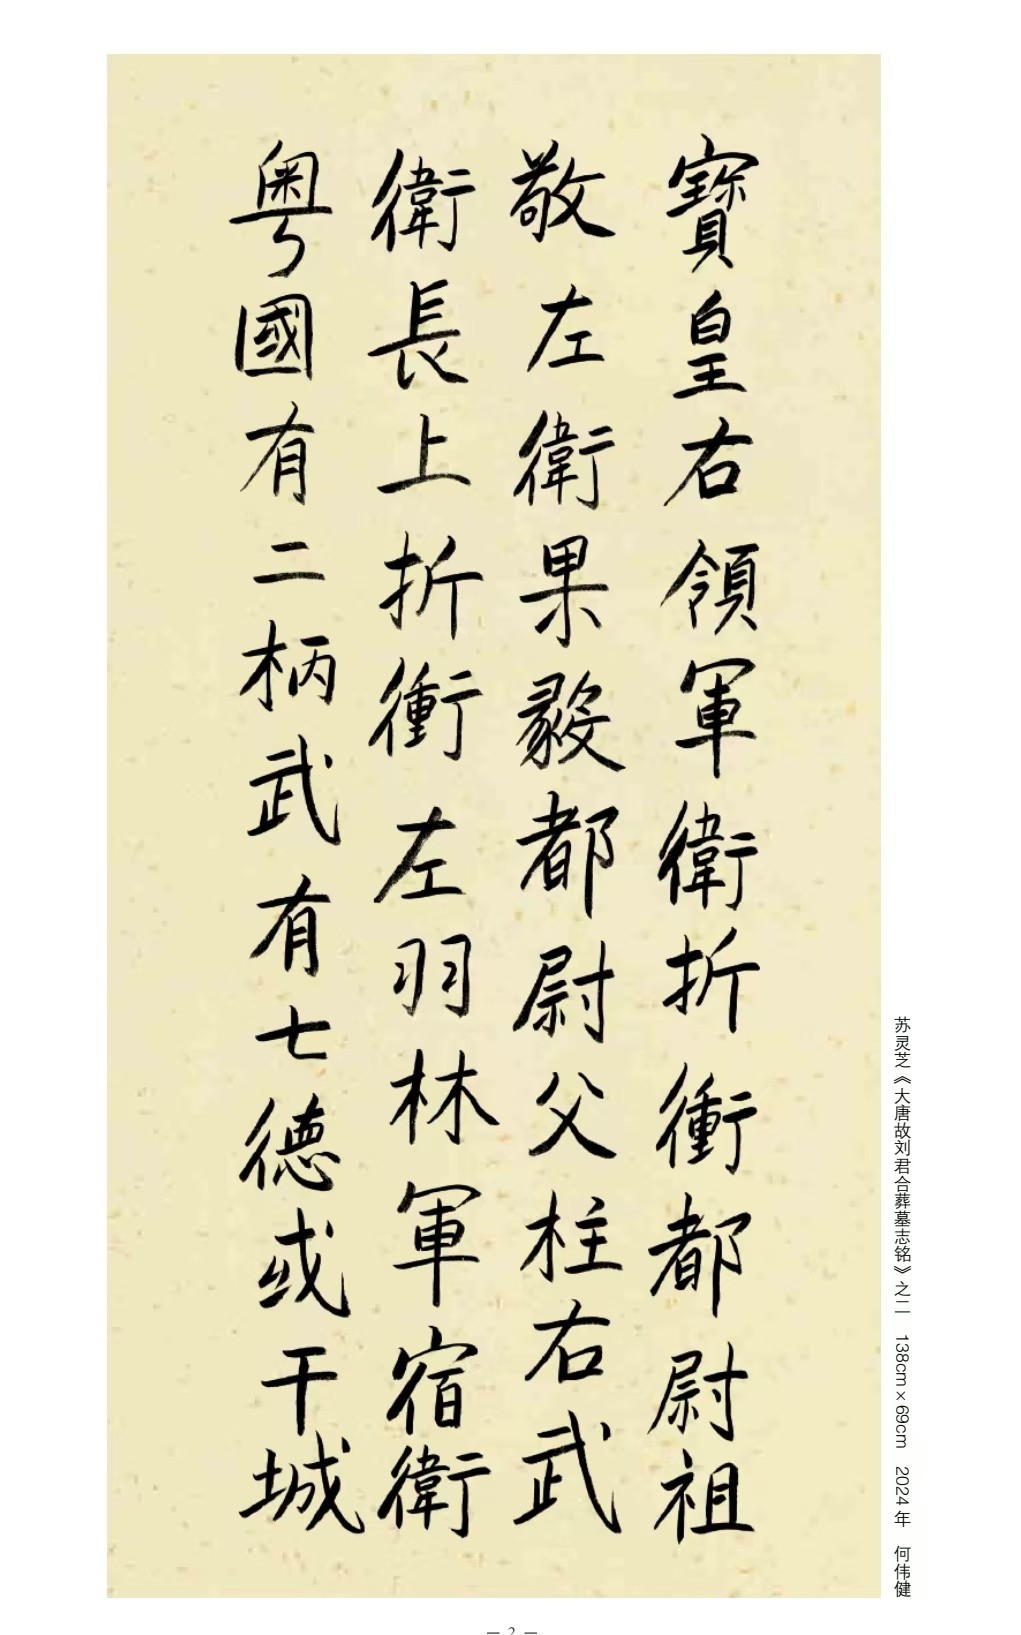 寶皇右領軍衛折衝都尉祖
敬左衛果毅都尉父柱右武
衛長上折衝左羽林軍宿衛
粵國有二柄武有七德或干城
苏灵芝《大唐故刘君合葬墓志铭》之二 138cm×69cm 2024年 何伟健
— 2 —